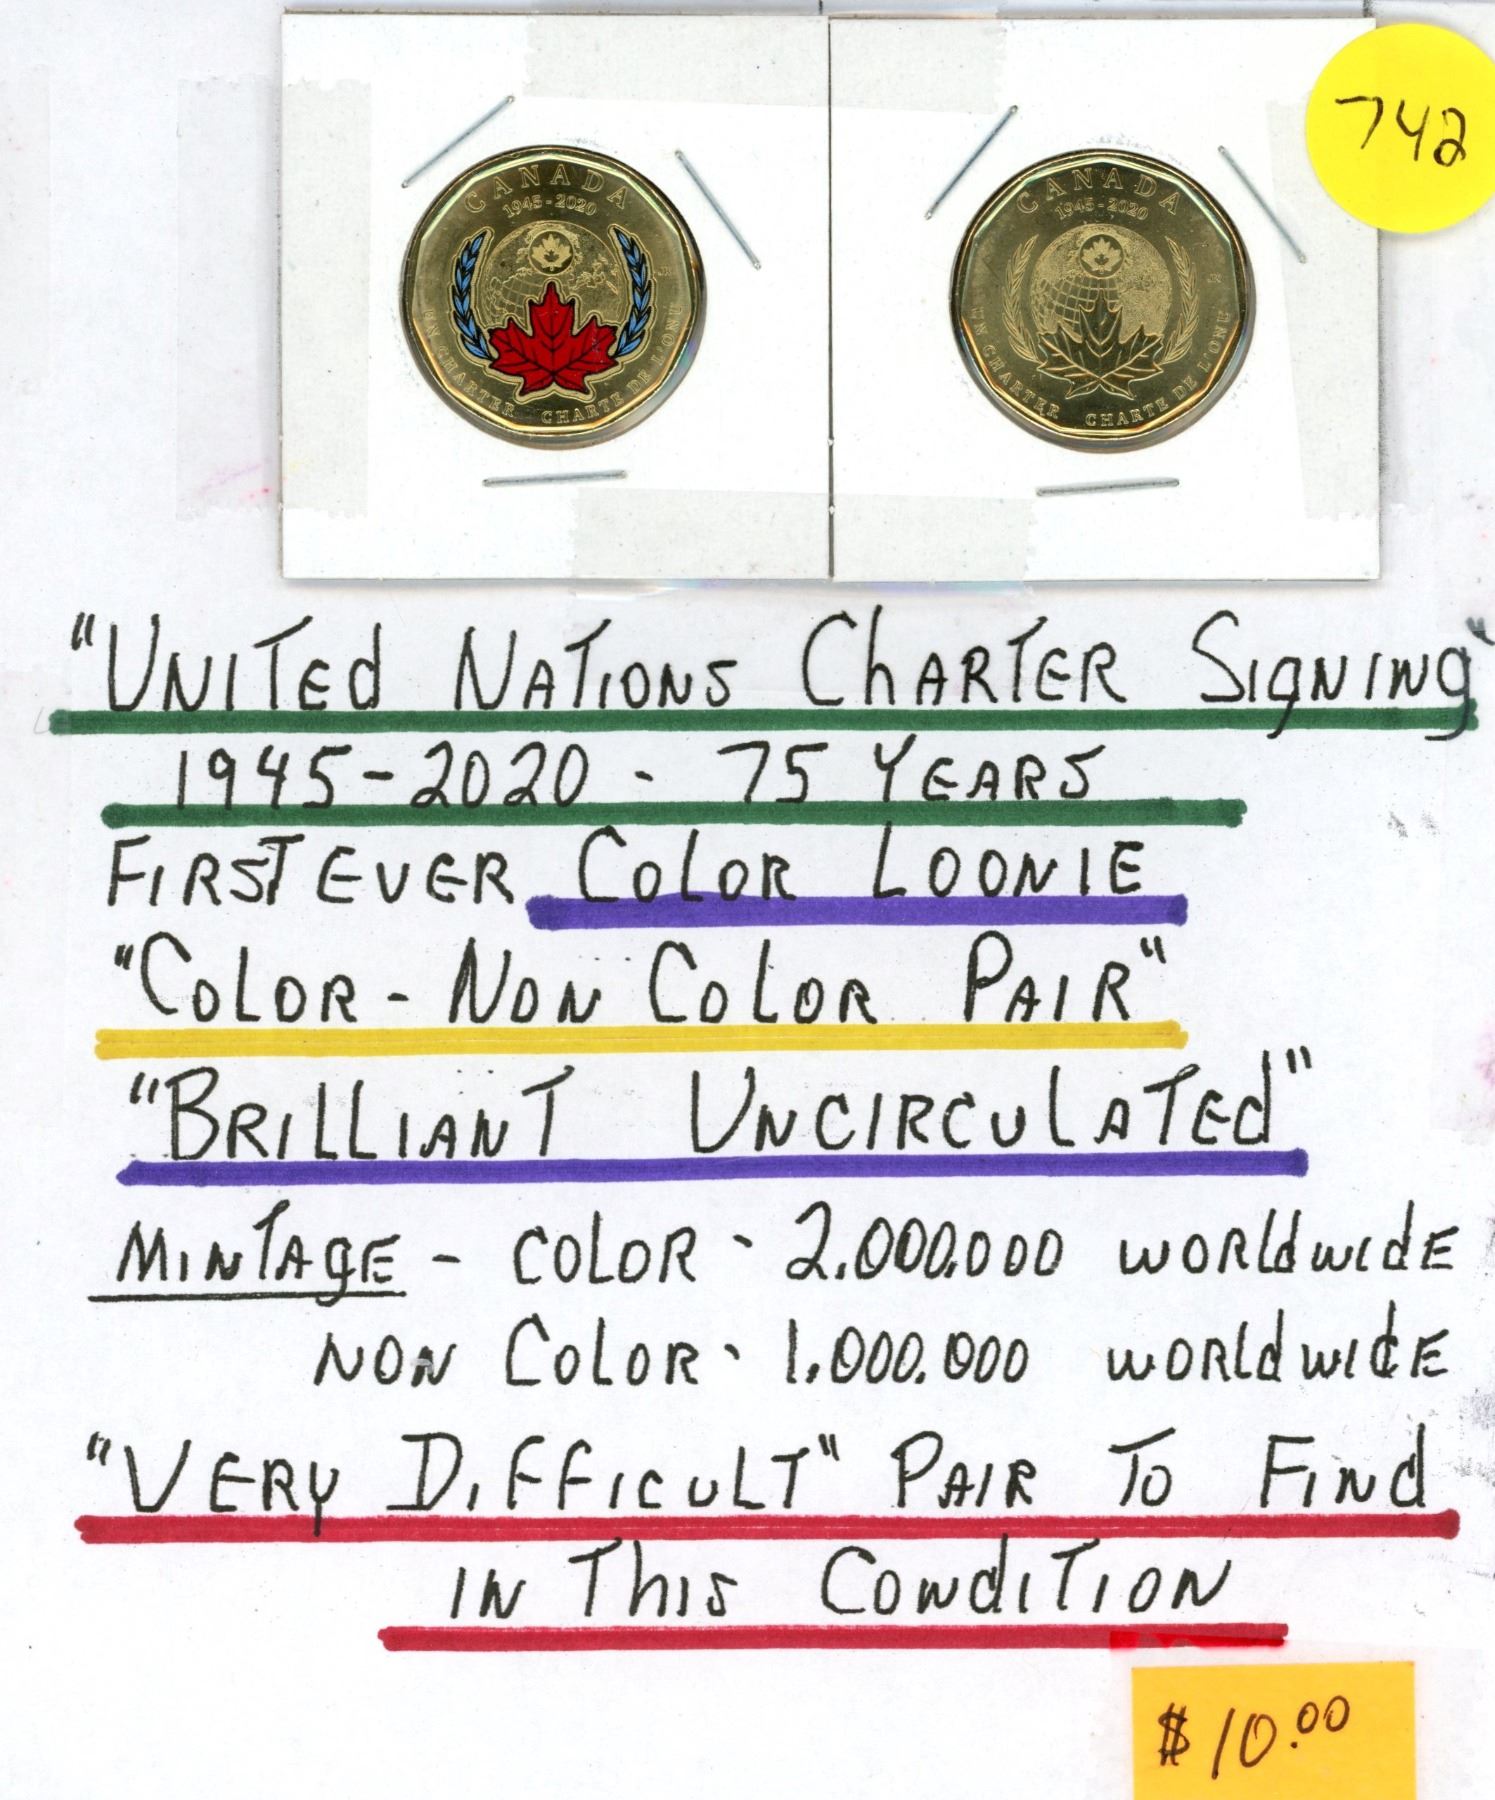 742
CANADA
1945-2020
UN CHARTER CHARTE DE L'ONU
JR
CANADA
1945-2020
UN CHARTER CHARTE DE L'ONU
JR
"UNITEd NATIONS ChARTER SIGNING"
1945-2020 - 75 YEARS
FIRST EVER COloR LOONIE
"COloR - NON COloR PAIR"
"BRILLIANT UNCIRCULATEd"
MINTAGE - COloR - 2.000.000 WORldwidE
NON COloR - 1.000.000 WORldwidE
"VERY DIFFICULT" PAIR TO FINd
IN ThIS CONdITION
$10.00